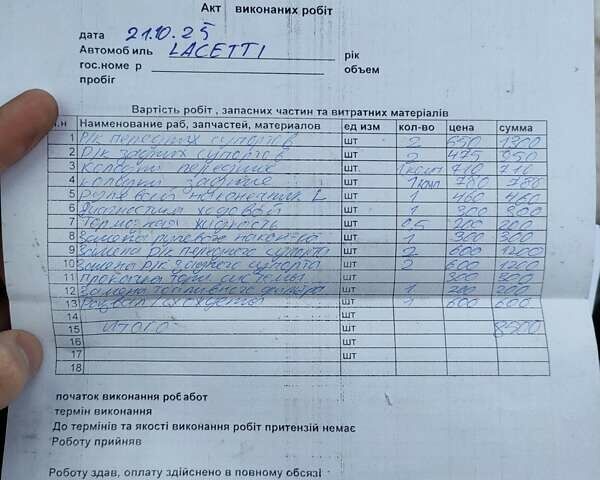 Акт виконаних робіт
дата 21.10.25
Автомоб иль LACETTI рік
гос.номе р объем
пробіг
Вартість робіт , запасних частин та витратних матеріалів
п.н Наименование раб, запчастей, материалов ед изм кол-во цена сумма
1 Р/к передних супортов шт 2 650 1300
2 Р/к задних супортов шт 2 475 950
3 Колодки передние шт. 1компл 710 710
4 Колодки задние шт 1компл 780 780
5 Рулевой наконечник L шт 1 460 460
6 Диагностика ходовой шт 1 300 300
7 Тормозная жидкость шт 0.5 200 200
8 Замена рулевого након-ка шт 1 300 300
9 Замена р/к переднего супорта шт 2 600 1200
10 Замена р/к заднего супорта шт 2 600 1200
11 Прокачка торм системы шт 300 300
12 Замена топливного фильтра шт 1 200 200
13 Развал схождения шт 1 600 600
14 шт
15 Итого шт 8500
16 шт
17 шт
18
початок виконання роб абот
термін виконання
До термінів та якості виконання робіт притензій немає
Роботу прийняв
Роботу здав, оплату здійснено в повному обсязі